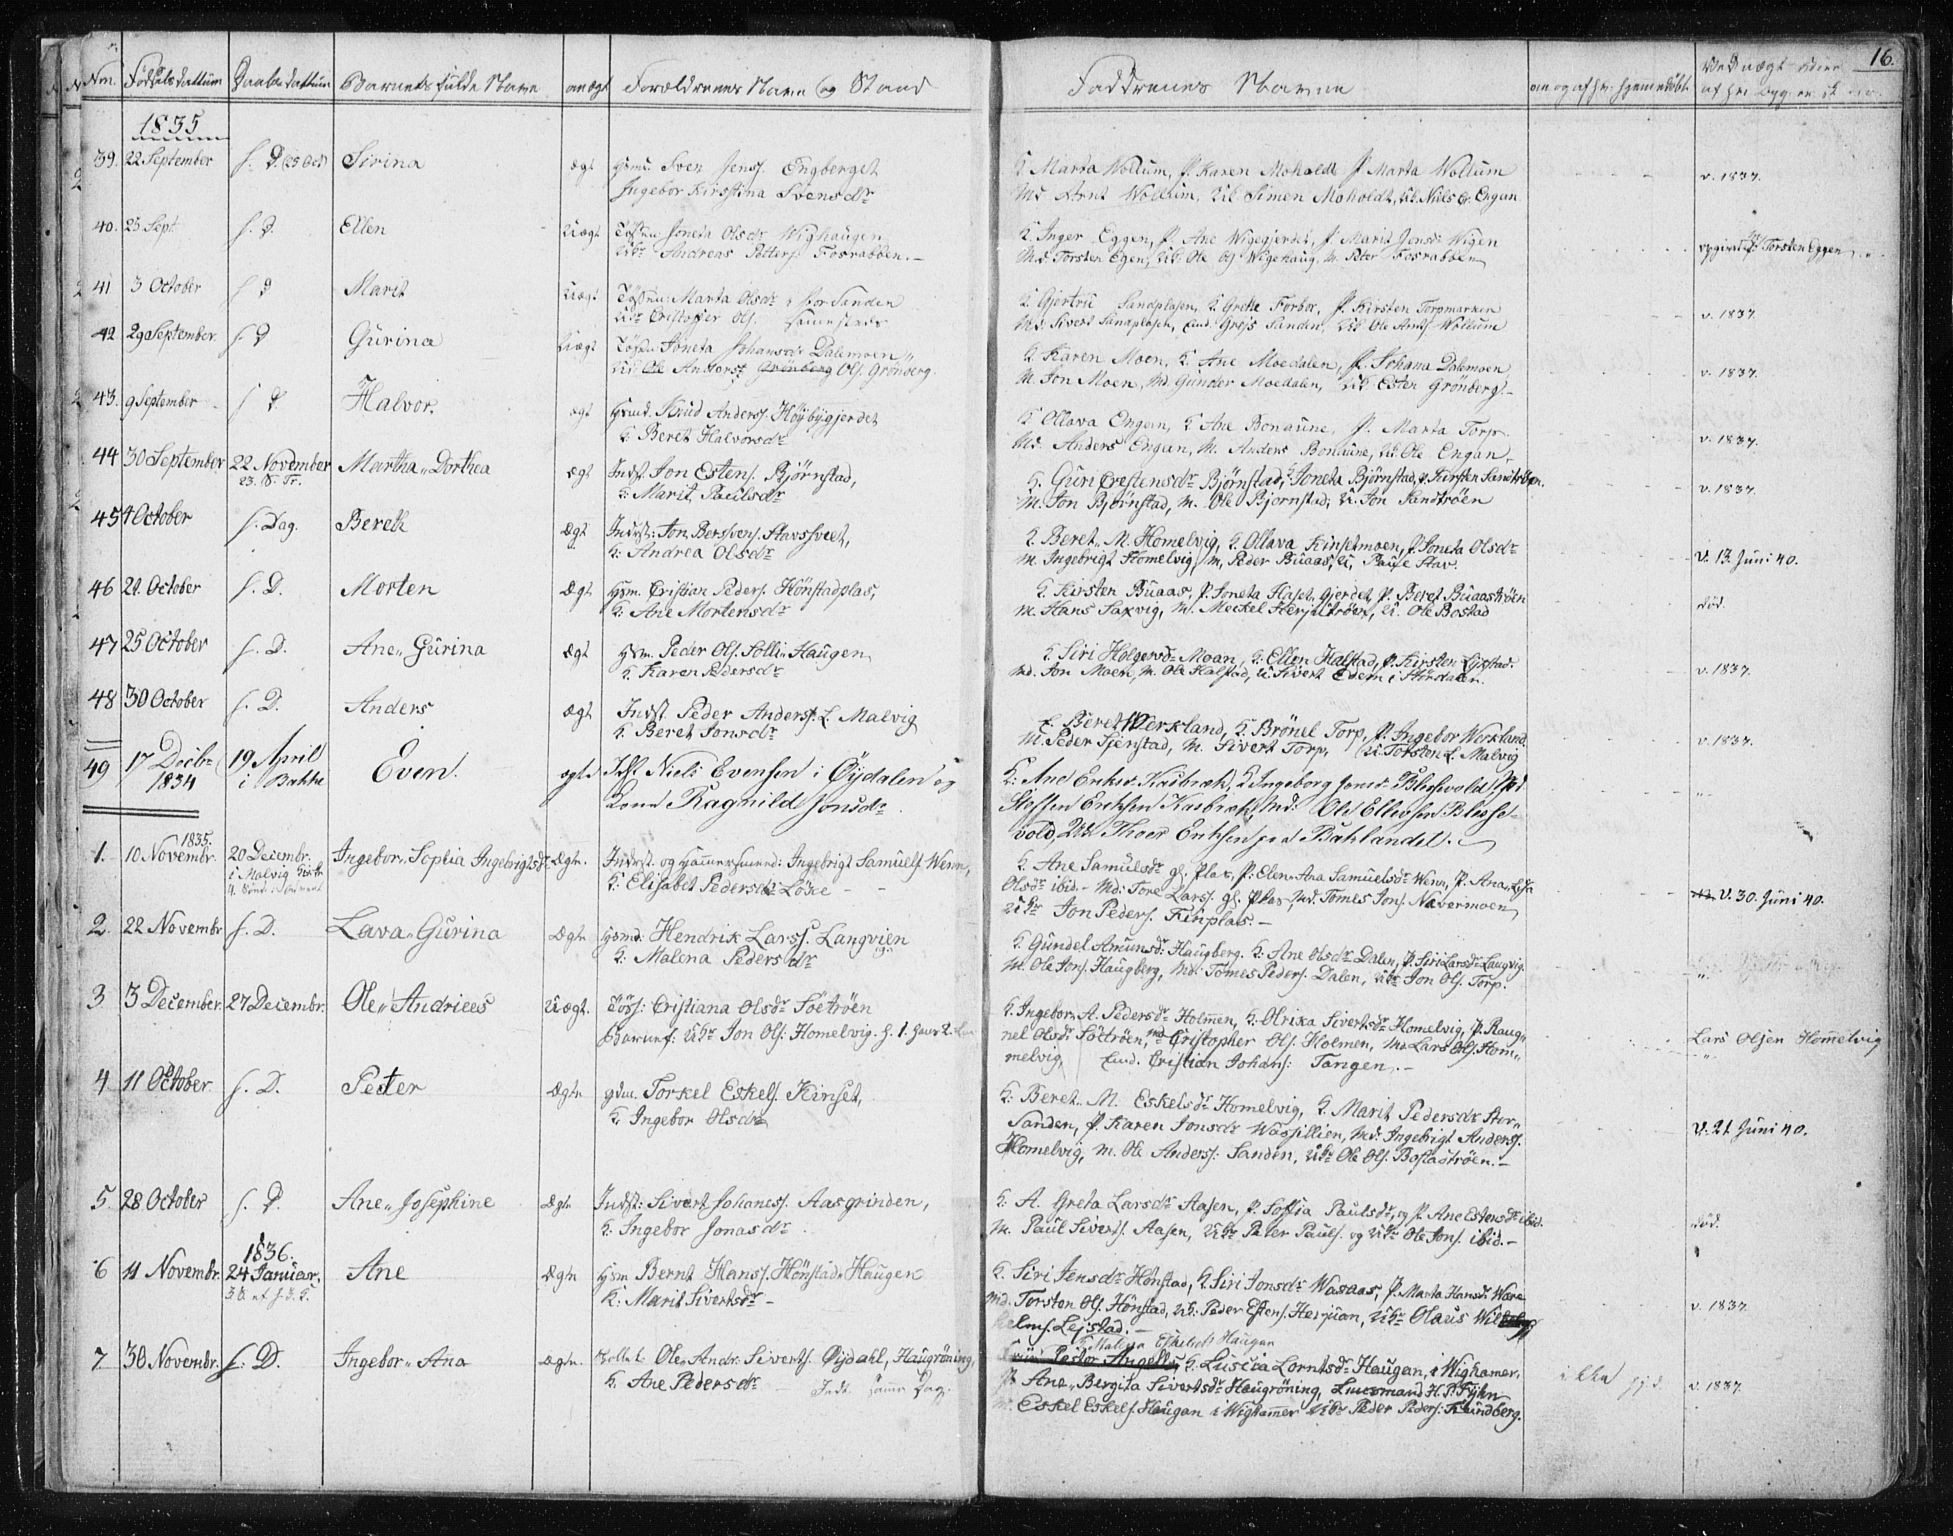 16.
Nm. Fødsels Dattum Daabs Dattum Barnets fulde Navn om ægt Forældrenes Navn og Stand Faddrenes Navne
1835
39. 22 September s. D. (25 Oct) Sirina ægt Hsmd. Sven Jens. Engberget
Ingebor Kirstina Svensdr
K Marta Wollum, P. Karen Moholdt P. Marta Wollum
Md Arnt Wollum, Uk Simon Moholdt, Uk. Niels Er. Engan.
v. 1837.
40. 25 Sept s. D. Ellen Uægt Tøsen: Joneta Olsdr Wighaugen
Ukr Andreas Petters. Fosrabben.
K Inger Eggen, P. Ane Wigegjerdet, P. Marit Jonsdr Wigen
Md. Torsten Egen, Uk. Ole Wigehaug, M. Peter Fosrabben
Torsten Eggen
41 3 October s. d Marit Uægt Tøsen: Marta Olsdr Sanden
Ukr Cristoffer Ols. sammesteds
K Gjertru Sandplasen, K Grethe Forbor, P. Kirsten Torpmarken
Md. Sivert Sandplasen, Sanden, Uk Ole Arnts. Wollum
v. 1837.
42 29 September s D Gurina Uægt Tøsen Joneta Johansdr Dalemoen
Ole Anders. Ols. Grönberg.
K Karen Moen, K Ane Moedalen, P. Johana Dalemoen
M. Jon Moen, Md. Gunder Moedalen, Uk. Esten Grönberg.
v. 1837.
43. 9 September s d. Halvor. ægt Hsmd. Knud Anders. Höybygjerdet
K. Beret Halvorsdr
K Ollava Engan, K Ane Bonaune, P. Marta Torp.
Md. Anders Engan, M. Anders Bonaune, Uk. Ole Engan.
v. 1837.
44 30 September 22 November Martha„ Dorthea ægt Indst. Jon Estens. Bjørnstad,
23. S. Tr. K. Marit Paulsdr
K. Guri Crestensdr Bjørnstad, K. Joneta Bjørnstad, P. Kirsten Sandtröen.
M. Jon Bjørnstad, M. Ole Bjornstad, U. Jon Sandtröen
v. 1837.
45 4 October s. Dag. Bereth Ægt Indst: Jon Berssvens. Stavssveet,
K: Andrea Olsdr
K. Beret„ M. Homelvig, K. Ollava Kinsetmoen, P. Joneta Olsdr
M. Ingebrigt Homelvig, M. Peder Buaas, U. Paul Stav.
V. 13 Juni 40.
46 21. October s. D. Morten Ægt Hsm. Cristian Peders. Hönstadplas,
K. Ane Mortensdr
K. Kirsten Buaas, P. Joneta Haset„ Gjerdet, P. Beret Buaaströen
M. Hans Saxvig, M. Meckel Herjuströen, U. Ole Bostad
död.
47 25 October s. D. Ane„ Gurina Ægt Hsm. Peder Ols. Solli„ Haugen
K. Karen Pedersdr
K. Siri Holgersdr Moan, K. Ellen Halstad, P. Kirsten
Md. Jon Moen, M. Ole Halstad, U. Sivert Edem i Stiordalen.
v. 1837.
48 30 October s. D. Anders Ægt Indst Peder Anders. L. Malvig
K. Beret Jonsdr
K. Beret Werkland, K. Brönel Torp, P. Ingebor Werkland.
M. Peder Sjenstad, M. Sivert Torp, U. Torsten L. Malvig
v. 1837.
49 17 Decbr 19 April Even. ægte Indst Niels Evensen i Øijdalen og
1834 i Bakke Kone Ragnild Jonsdr.
K: Ane Eriksdr Kasbrak, K Ingeborg Jonsdr Blesevold, Md
Steffen Eriksen Kasbrak, Md: Ole Ellevsen Blesse-
vold, Thoer Eriksen paa Baklandet.
1835.
1. 10 Novembr. 20 Decembr. Ingebor„ Sophia Ingebrigtsdr Ægte. Indrst. og Hammersmed: Ingebrigt Samuels. Wenn,
i Malvig Kirke K: Elisabet Pedersdr Löxe
K. Ane Samuelsdr gl. plas, P: Elen„ Ana Samuelsdr Wenn, P. Ana„ Lisa
Olsdr ibid. Md: Tore Lars. gl. Plas, Md. Tomes Jons. Navermoen
Ukr Jon Peders. Finplas.
V. 30. Juni 40.
2. 22 Novembr s. D. Lava„ Gurina Ægte Hsmd: Hendrik Lars. Langvien
K: Malena Pedersdr
K. Gundel Amunsdr Haugberg. K. Ane Olsdr Dalen, P. Siri Larsdr Langvig.
M. Ole Jons. Haugberg, Md: Tomes Peders. Dalen, Ukr Jon Ols. Torp.
3 3 December 27 Decembr. Ole„ Andrices Uægt. Tøss: Cristiana Olsdr Söetröen
Barnef: Ukr Jon Ols. Homelvig.
K. Ingebor„ A. Pedersdr Holmen, K. Olrika Sivertsdr Homelvig, P. Raug„
nel Olsdr Söetröen, Md Cristopher Ols. Holmen, Md Lars Ols. Hom„
melvig, Cristian Johans: Tangen.
Lars Olsen Hommelvig
4. 11 October. s. D. Peter Ægte gdm. Torkel Eskels. Kinset,
K. Ingebor Olsdr
K: Beret„ M. Eskelsdr Homelvig, K. Marit Pedersdr Stor„
Sanden, P. Karen Jonsdr Wassillien, Md: Ingebrigt Anders.
Homelvig, M. Ole Anders: Sanden, Ukr Ole Ols. Bostaströen.
V. 21 Juni 40.
5. 28 October s. D. Ane„ Josephine Ægte Indst: Sivert Johanes. Aasgrinden,
K. Ingebor Jonasdr
K: A. Greta Larsdr Aasen, P. Soffia Paulsdr, og P. Ane Estensdr ibid.
M. Paul Siverts. Aasen, Ukr Peter Pauls. og Ukr Ole Jons. ibid.
död.
1836.
6 11 Novembr. 24 Januar. Ane Ægte Hsm Bernt Hans. Hönstad„ Haugen
K: Marit Sivertsdr
K. Siri Jensdr Hönstad, K Siri Jonsdr Wasaas, P. Marta Hansdr Ware
Md. Torston Ols. Hönstad, Uk. Peder Estens. Herjuan, Ukr Olaus Wil
helms. Leistad.
v. 1837.
7 30 Novembr. s. D. Ingebor„ Ana Ægte. Ole„ Andr. Siverts. Øijdahl, Haugröning,
K. Ane Pedersdr
Malena Eskelsdr Haugan
Pastor Angell, K. Luscia Lorntsdr Haugan, i Wighamer,
P Ane„ Bergita Sivertsdr Haugröning, Lensmand H. P. Fijhn
M. Eskel Eskels. Haugan i Wighammer Ukr Peder Peders: Sundberg.
v. 1837.